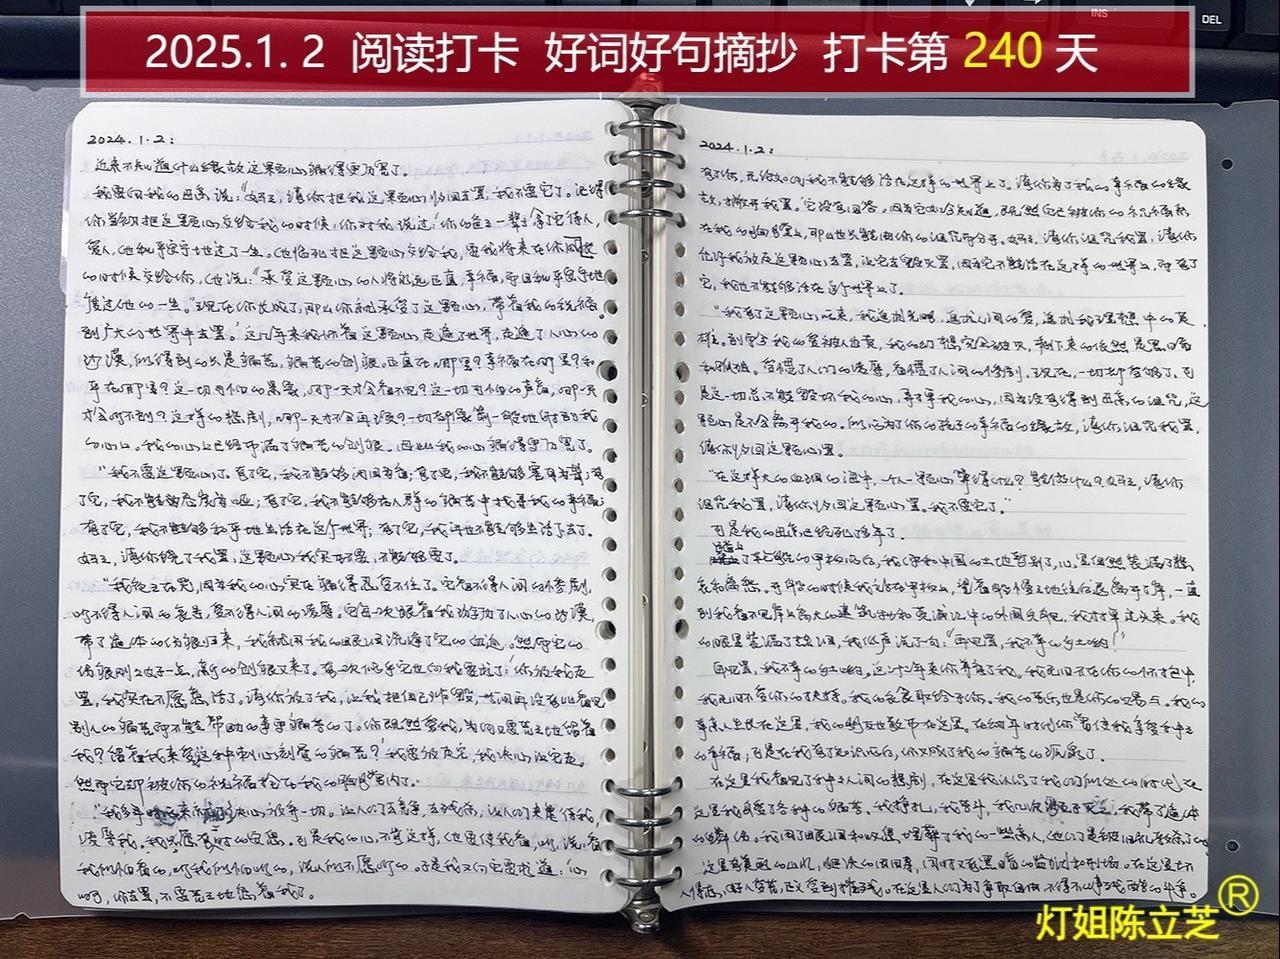 2025.1.2 阅读打卡 好词好句摘抄 打卡第 240 天
2024.1.2:
近来不知道什么缘故这颗心痛得更厉害了。
我要向我的母亲说:"妈妈,请你把我这颗心收回去罢,我不要它了。记得
你当初把这颗心交给我的时候,你对我说过:'你的爸爸一辈子拿了它待人,
爱人,他和平安宁地过了一生。他临死把这颗心交给我,要我将来在你
的时候交给你,他说:"承受这颗心的人将永远正直,幸福,而且和平安宁地
度过他的一生。"现在你长成了,那么你就承受了这颗心,带着我的祝福,
到广大的世界中去罢。'这几年来我怀着这颗心走遍了世界,走遍了人心的
沙漠,所得到的只是痛苦,痛苦的创痕。正直在哪里?幸福在哪里?和
平在哪里?这一切可怕的景象,哪一天才会看不见?这一切可怕的声音,哪一天
才会听不到?这样的悲剧,哪一天才不会再演?一切都像箭一般地射到我
的心上。我的心上已经布满了痛苦的创痕。因此我的心痛得更厉害了。
"我不要这颗心了。有了它,我不能够闭目为盲;有了它,我不能够塞耳为聋;有
了它,我不能够吞炭为哑;有了它,我不能够在人群的痛苦中找寻我的幸福;
有了它,我不能够和平地生活在这个世界;有了它,我再也不能够生活下去了。
妈妈,请你饶了我罢,这颗心我实在不要,不能够要了。
"我夜夜在哭,因为我的心实在痛得忍受不住了。它看不得人间的惨剧,
听不得人间的哀号,受不得人间的凌辱。它每一次跟着我游历了人心的沙漠,
带了遍体的伤痕归来,我就用我的眼泪洗净了它的血迹。然而它的
伤痕刚刚好一点,新的创痕又来了。有一次似乎它也向我要求了:'你放我走
罢,我实在不愿意活了。请你放了我,让我把自己炸毁,世间再没有比看见
别人的痛苦而不能帮助的事更痛苦的了。你既然爱我,为何又要苦苦地留着
我?留着我来受这种刺心刻骨的痛苦?'我要放走它,我决心让它走。
然而它却被你的祝福拴在我的胸膛内了。
"我多时以来就决心放弃一切。让人们去竞争,去残杀;让人们来虐待我,
凌辱我。我只愿有一时的安息。可是我的心不肯这样,他要使我看,听,说:看
我所怕看的,听我所怕听的,说人所不愿听的。于是我又向它要求道:'心
呵,你去罢,不要苦苦地恋着我了。
2024.1.2:
有了你,无论如何我不能够活在这样的世界上了。请你为了我的幸福的缘
故,撇开我罢。'它没有回答。因为它如今知道,既然它已被你的祝福拴
在我的胸膛上,那么也只能由你的诅咒而分开。妈妈,请你诅咒我罢,请你
允许我放走这颗心去罢,让它去毁灭罢,因为它不能活在这样的世界上,而有了
它,我也不能够活在这个世界上了。
"我有了这颗心以来,我追求光明,追求人间的爱,追求我理想中的英
雄。到而今我的爱被人出卖,我的幻想完全破灭,剩下来的依然是黑暗
和孤独。受惯了人们的凌辱,看惯了人间的惨剧。现在,一切都受够了。可
是这一切总不能毁坏我的心,弄掉我的心,因为没有得到母亲的诅咒,这
颗心是不会离开我的。所以为了你的孩子的幸福的缘故,请你诅咒我罢,
请你收回这颗心罢。
"在这样大的血泪的海中,一个人一颗心算得什么?能做什么?妈妈,请你
诅咒我罢,请你收回这颗心罢。我不要它了。"
可是我的母亲已经死了多年了。
踏上了轮船的甲板以后,我便和中国的土地暂别了,心里自然装满了悲
哀和离愁。开船的时候我站在甲板上,望着船慢慢地往后退离开了岸,一直
到我看不见岸上高大的建筑物和黄浦江中的外国兵舰,我才掉过头来。我
的眼里装满了热泪,我低声说了一句:"再见罢,我不幸的乡土哟!"
再见罢,我不幸的乡土哟,这二十二年来你养育了我。我无日不在你的怀抱中,
我无日不受你的扶持。我的衣食取给于你。我的苦乐也是你的赐与。我的
亲人生长在这里,我的朋友也散布在这里。在幼年时代你曾使我享受种种
的幸福;可是在我有了知识以后,你又成了我的痛苦的源泉了。
在这里我看见了种种人间的悲剧,在这里我认识了我们所处的时代,在
这里我身受了各种的痛苦。我挣扎,我苦斗,我几次濒于灭亡,我带了遍体
的鳞伤。我用了眼泪和叹息埋葬了我的一些亲人,他们是被旧礼教杀了的。
这里有美丽的山水,肥沃的田畴,同时又有黑暗的监狱和刑场。在这里坏
人得志,好人受苦,正义受到摧残。在这里人们为了争取自由,不得不从事残酷的斗争。
灯姐陈立芝®
INS
DEL